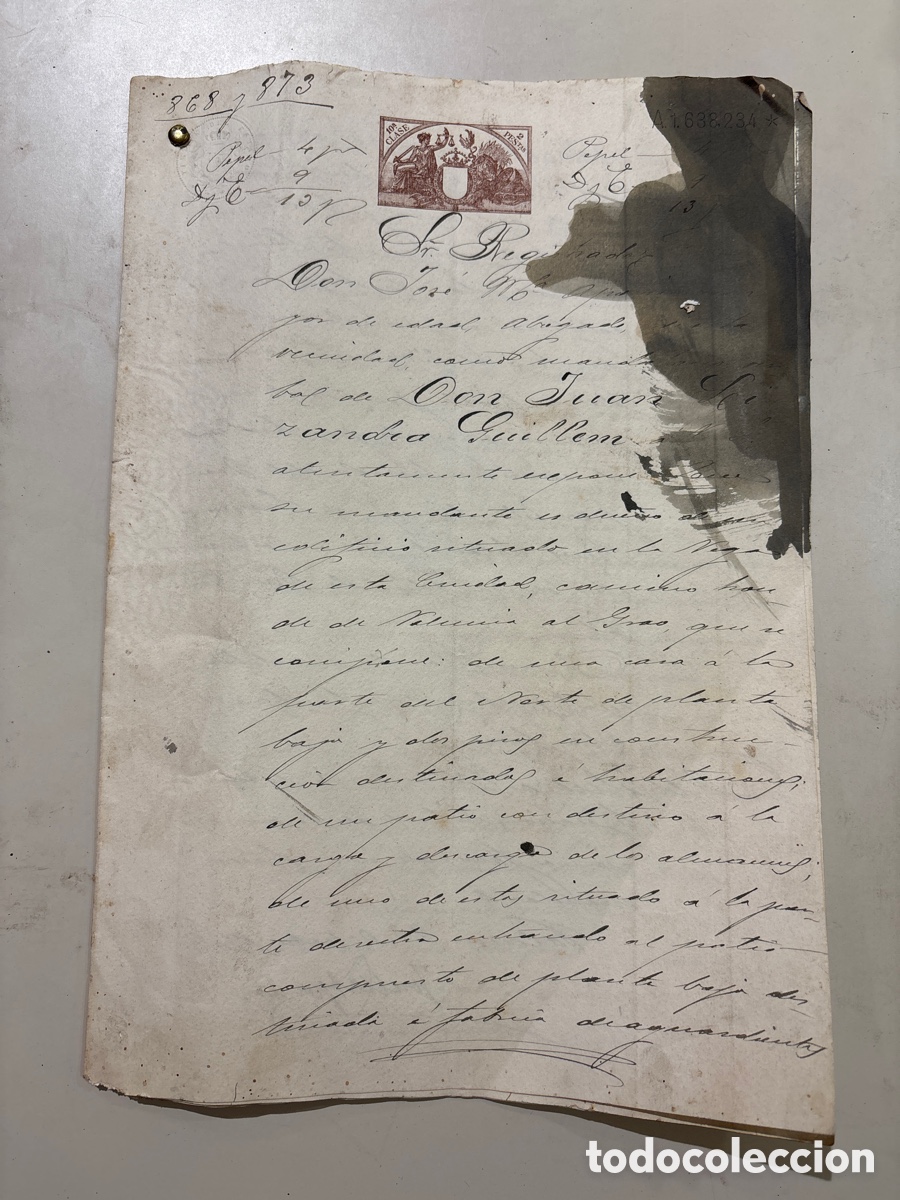 868 y 873
10ª CLASE 2 PESTAS
A1.638.234*
Papel 4
D y T 9
13
Papel 4
D y T
13
Sr. Registrador
Don José Mª
yor de edad, Abogado,
vecindad, como manda
bal de Don Juan Li
zandra Guillem
atentamente expone: Que
su mandante es dueño de un
edificio situado en la Vega
de esta Ciudad, camino hon-
do de Valencia al Grao, que se
compone: de una casa á la
parte del Norte de planta
baja y dos pisos en construc-
ción destinados á habitaciones;
de un patio con destino á la
carga y descarga de los almacenes;
de uno de estos situado á la par-
te derecha entrando al patio
compuesto de planta baja des
tinada á fabrica de aguardientes
todocoleccion